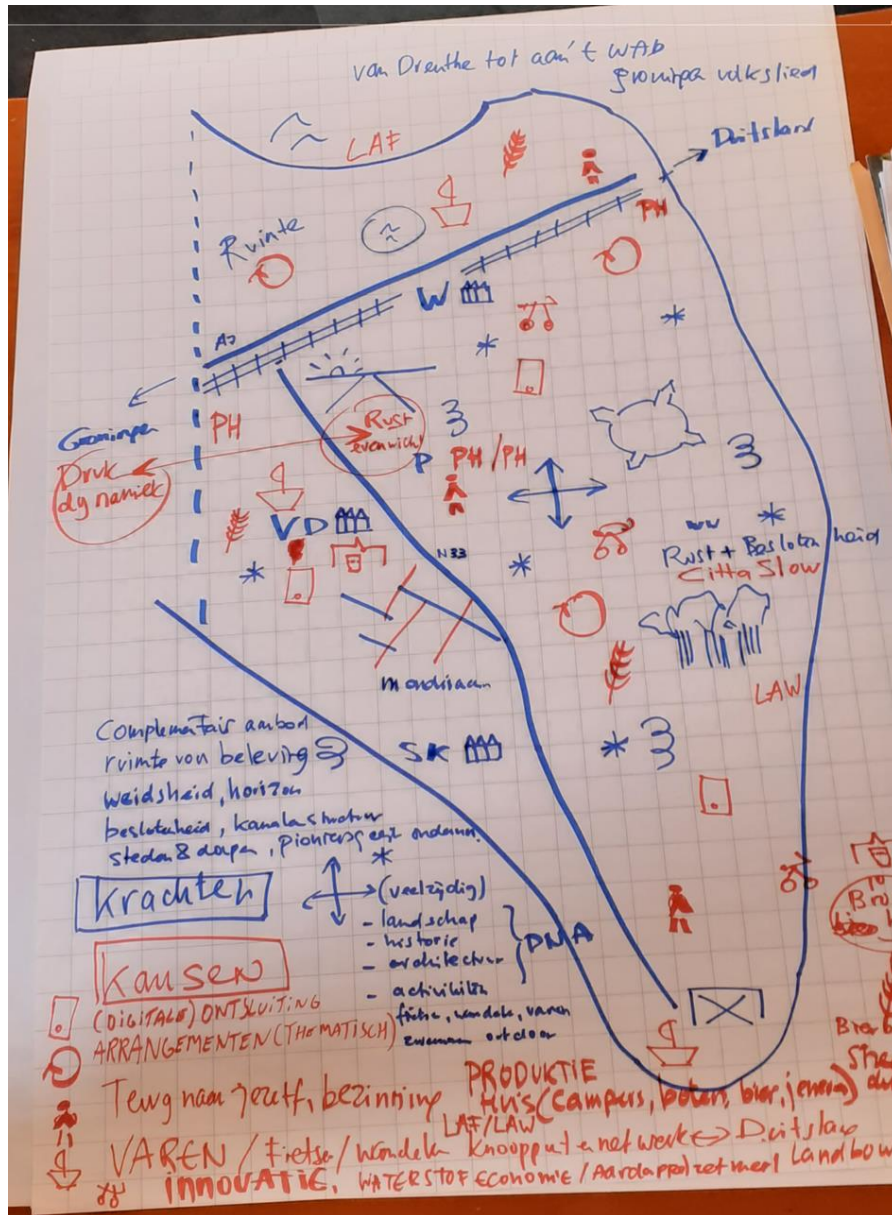 van Drenthe tot aan't WAD
groninger volkslied
LAF
Duitsland
Ruimte
PH
W
A7
Groningen
PH
Rust
evenwicht
Druk
dynamiek
P
PH/PH
VD
N33
Rust + Beslotenheid
Citta Slow
LAW
SK
Complementair aanbod
ruimte von beleving
weidsheid, horizon
beslotenheid, kanalastructuur
steden & dorpen, pioniersgeest
Krachten
(veelzijdig)
- landschap
- historie
- architectuur
- activiteiten
DNA
fietse, wandele, varen
zwemmen outdoor
Kansen
(DIGITALE) ONTSLUITING
ARRANGEMENTEN (THEMATISCH)
Terug naar jezelf, bezinning
PRODUKTIE
Huis (campus, boten, bier, jenever)
LAF/LAW
VAREN / Fietse / Wandelen Knooppunte netwerk Duitsland
INNOVATIE, WATERSTOF ECONOMIE / Aardappelzetmeel Landbouw